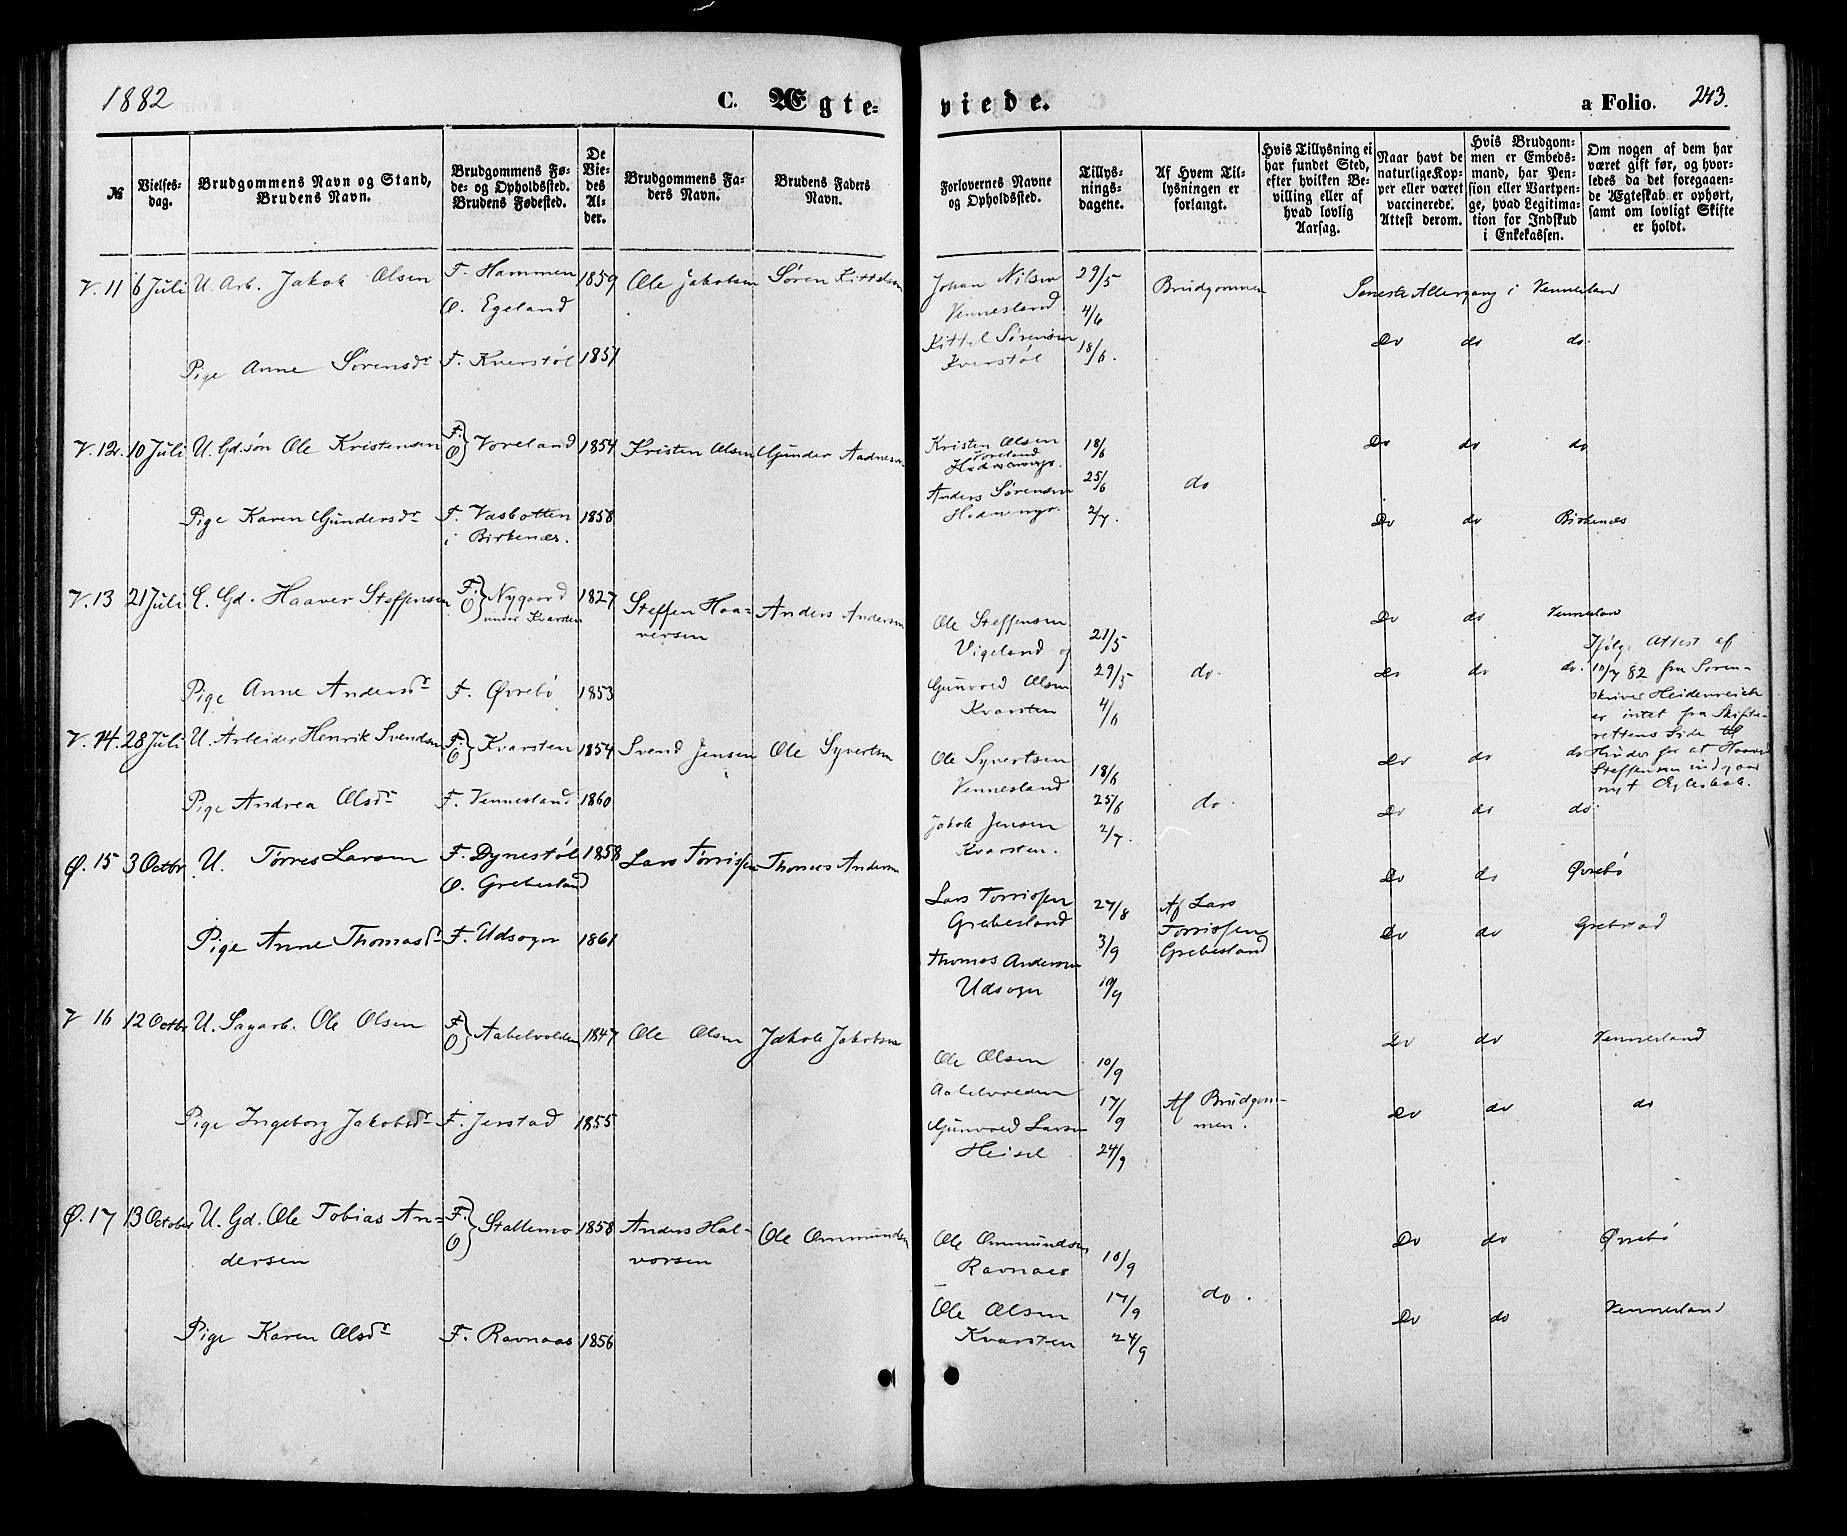 1882 C. Ægte- viede. a Folio. 243.
№
Vielses-
dag.
Brudgommens Navn og Stand,
Brudens Navn.
Brudgommens Fø-
de- og Opholdssted.
Brudens Fødested.
De
Vie-
des
Al-
der.
Brudgommens Fa-
ders Navn.
Brudens Faders
Navn.
Forlovernes Navne
og Opholdssted.
Tillys-
nings-
dagene.
Af Hvem Til-
lysningen er
forlangt.
Hvis Tillysning ei
har fundet Sted,
efter hvilken Be-
villing eller af
hvad lovlig
Aarsag.
Naar havt de
naturlige Kop-
per eller været
vaccinerede.
Attest derom.
Hvis Brudgom-
men er Embeds-
mand, har Pen-
sion eller Vartpen-
ge, hvad Legitima-
tion for Indskud
i Enkekassen.
Om nogen af dem har
været gift før, og hvor-
ledes da det foregaaen-
de Ægteskab er ophørt,
samt om lovligt Skifte
er holdt.
V. 11 6 Juli U. Arb. Jakob Olsen F. Hammen 1859 Ole Jakobsen Søren Kittelsen
O. Egeland
Pige Anne Sørensdr F. Kverstøl 1851
Johan Nilsen 29/5 Brudgommen Seneste Altergang i Vennesland
Vennesland 4/6
Kittel Sørensen 18/6. Do do do.
Kverstøl
V. 12. 10 Juli U. Gd.søn Ole Kristensen F. O} Voreland 1854 Kristen Olsen Gunder Aadnesen
Pige Karen Gundersdr F. Vasbotten 1858
i Birkenæs.
Kristen Olsen 18/6 Do do do
Voreland
25/6 do
Anders Sørensen
2/7. Do do Birkenæs
V. 13 21 Juli E. Gd. Haaver Steffensen F. O} Nygaard 1827 Steffen Haa- Anders Andersen
under Kvarsten versen
Pige Anne Andersdr F. Øvrebø 1853
Ole Steffensen 21/5 Do do Vennesland
Vigeland og
Gunvold Olsen 29/5 do. Do do do.
Kvarsten 4/6
Ifølge Attest af
10/7 82 fra Soren-
skriver Heidenreich
er intet fra Skifte-
rettens Side til
Hinder for at Haaver
Steffensen indgaar
nyt Ægteskab.
V. 14. 28 Juli U. Arbeider Henrik Svendsen F. O} Kvarsten 1854 Svend Jensen Ole Syvertsen
Pige Andrea Olsdr F. Vennesland 1860
Ole Syvertsen 18/6 Do do do
Vennesland 25/6 do.
Jakob Jensen 2/7. Do do do.
Kvarsten.
Ø. 15 3 Octbr U. Tørres Larsen F. Dynestøl 1858 Lars Tørrissen Thomas Andersen
O. Grebesland
Pige Anne Thomasdr F. Udsogn 1861
Lars Torrissen 27/8 Af Lars Do do Øvrebø
Grebesland Torrissen
3/9 Grebesland Do do
Thomas Andersen
Udsogn 10/9
V 16 12 Octbr U. Sagarb. Ole Olsen F. O} Aabelvolden 1847 Ole Olsen Jakob Jakobsen
Pige Ingeborg Jakobsdr F. Jerstad 1855
Ole Olsen 10/9 Do do Vennesland
Aabelvolden
17/9 Af Brudgom-
men. Do do do
Gunvold Larsen
Heisel 24/9
Ø. 17 13 October U. Gd. Ole Tobias An- F. O} Stallemo 1858 Anders Hal- Ole Ommundsen
dersen vorsen
Pige Karen Olsdr F. Ravnaas 1856
Ole Ommundsen 10/9 Do do Øvrebø
Ravnaas
17/9 do.
Ole Olsen Do do Vennesland
Kvarsten 24/9